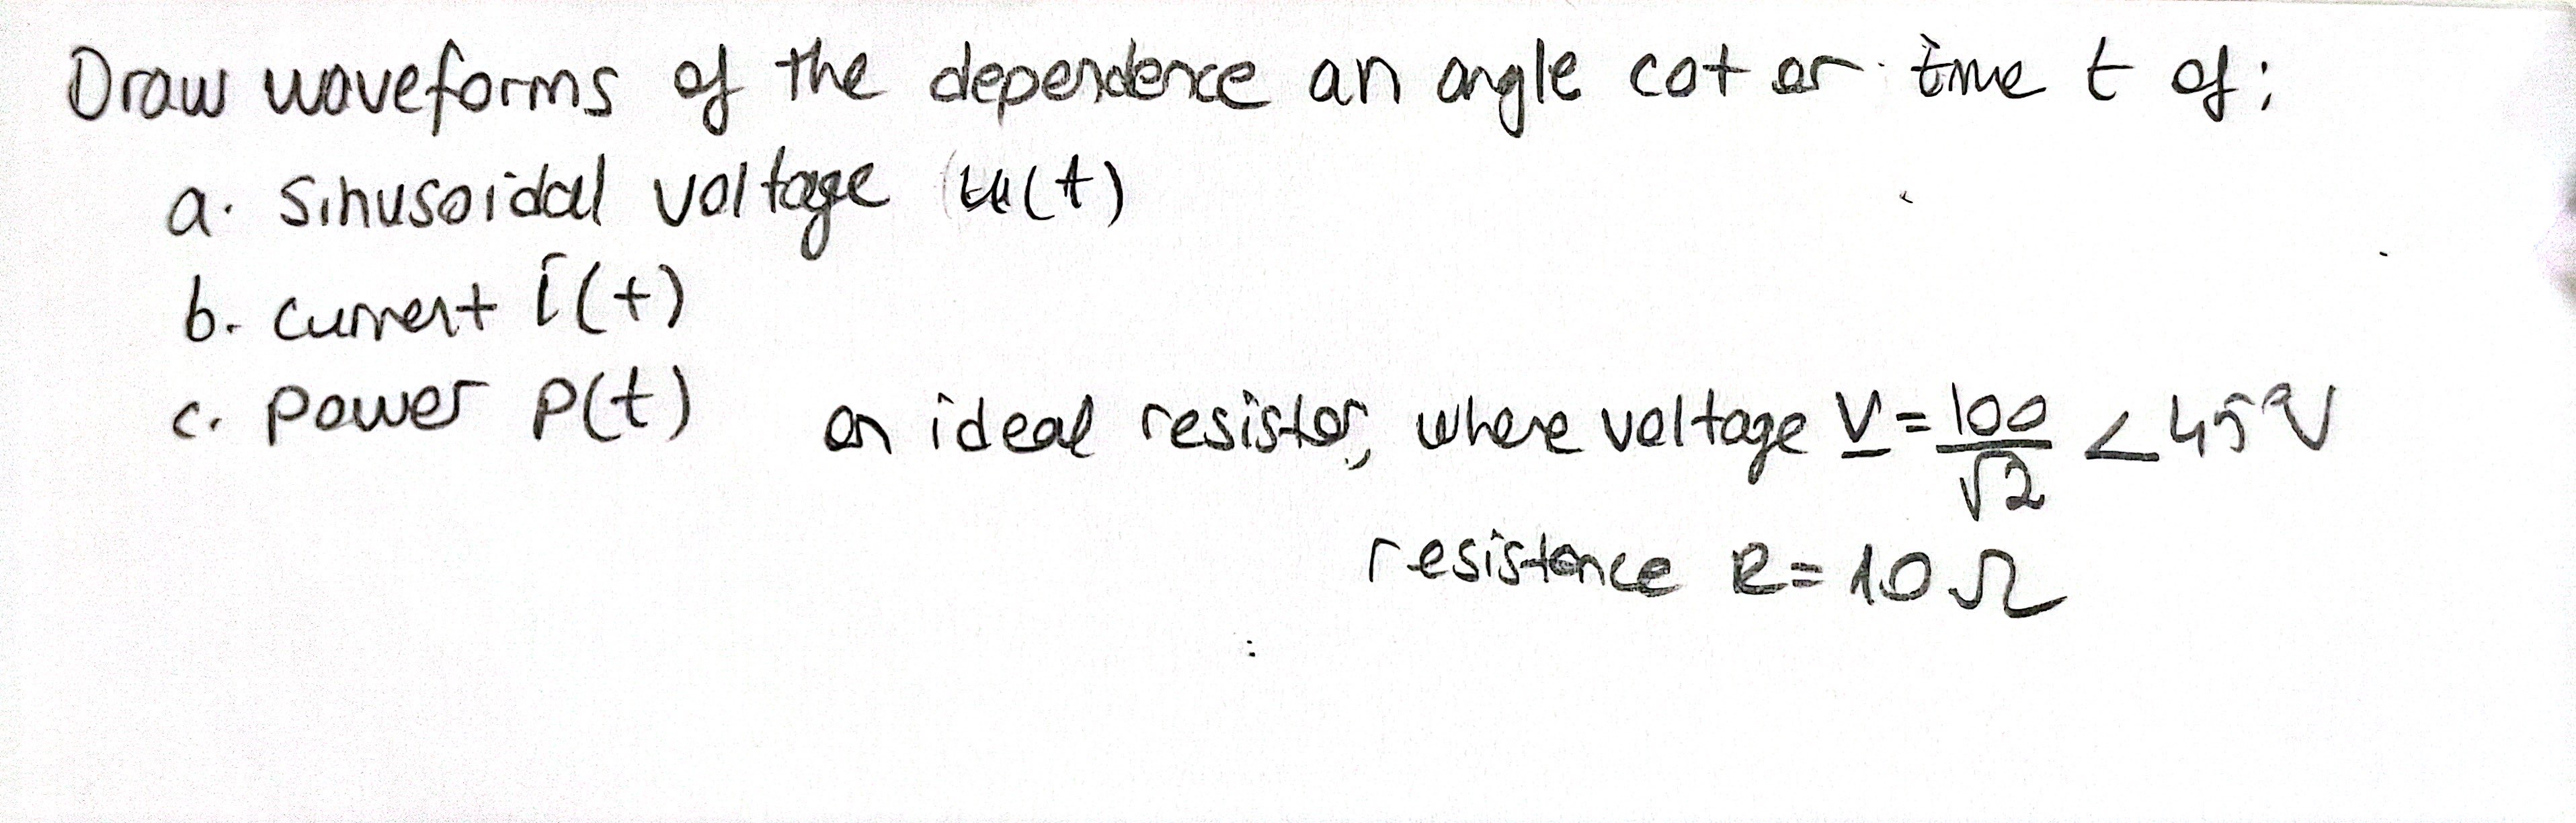 Draw waveforms of the dependence an angle cot or time t of;
a. sinusoidal voltage u(t)
b. current i(t)
c. power p(t) on ideal resistor, where voltage V = 100/√2 ∠45° V
resistance R = 10 Ω